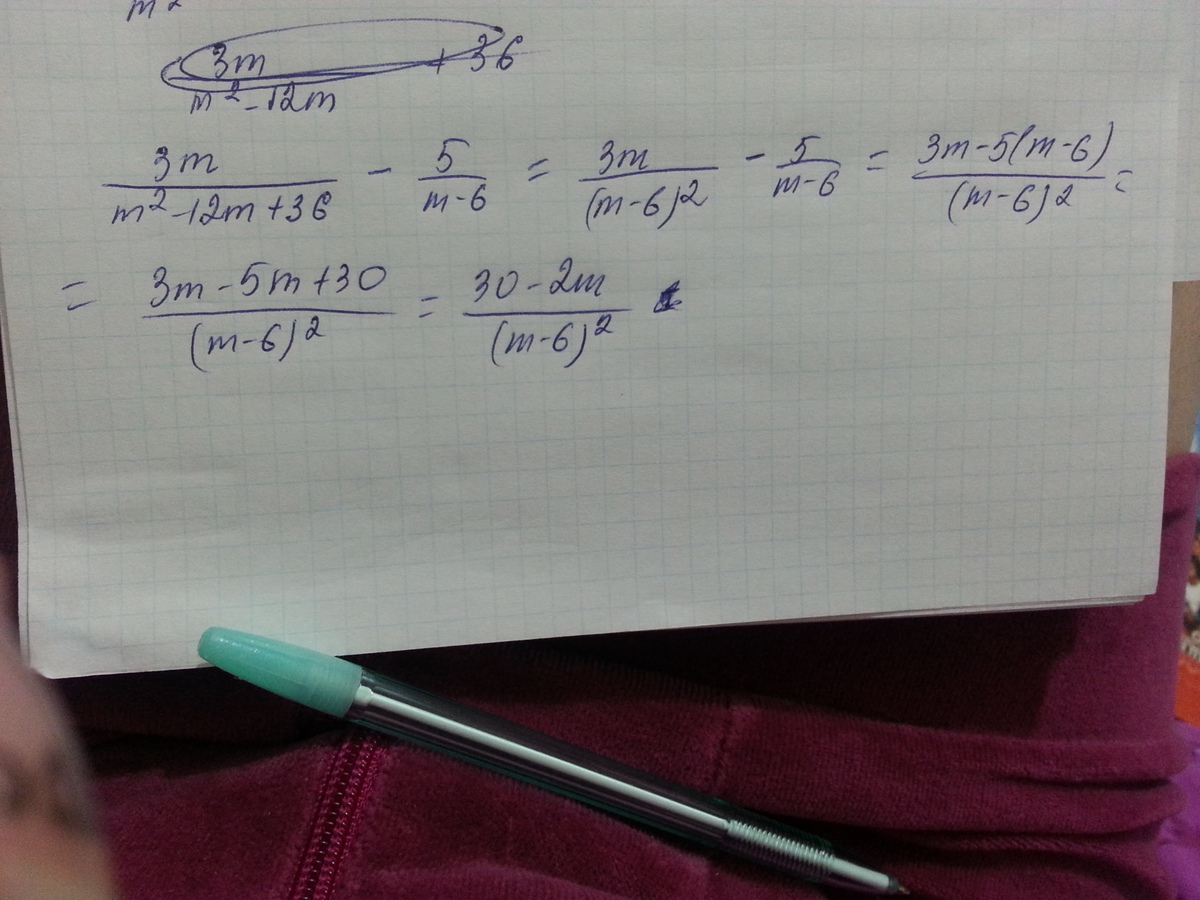 m²
3m/(m²-12m) + 36
3m/(m²-12m+36) - 5/(m-6) = 3m/(m-6)² - 5/(m-6) = (3m-5(m-6))/(m-6)² =
= (3m-5m+30)/(m-6)² = (30-2m)/(m-6)²